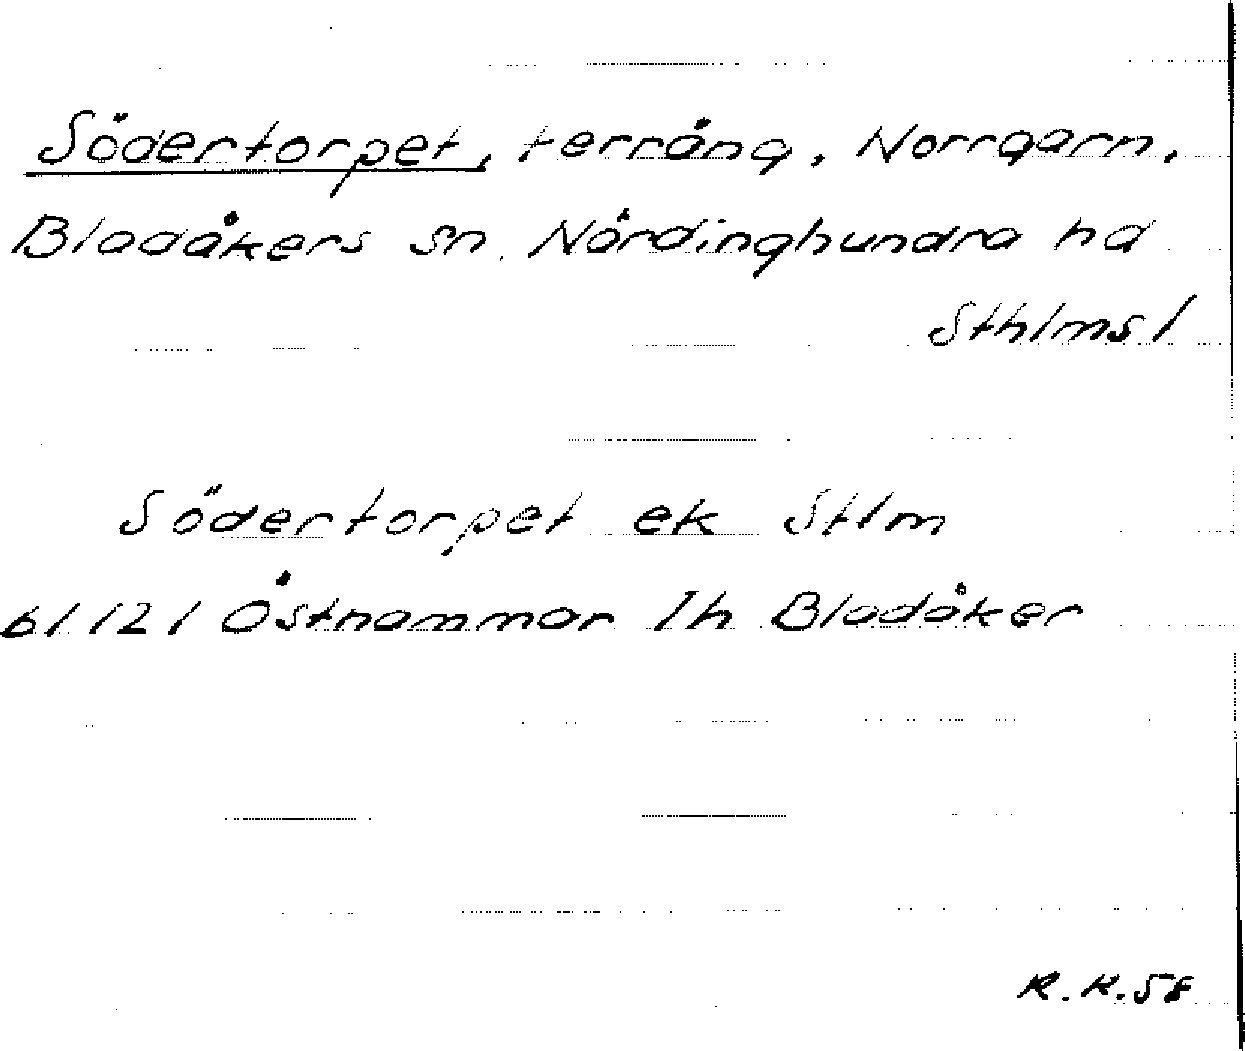 Södertorpet, terräng, Norrgarn,
Bladåkers sn. Närdinghundra hd
Sthlms l
Södertorpet ek Stlm
61 12 1 Östhammar 1h Bladåker
R.K.58